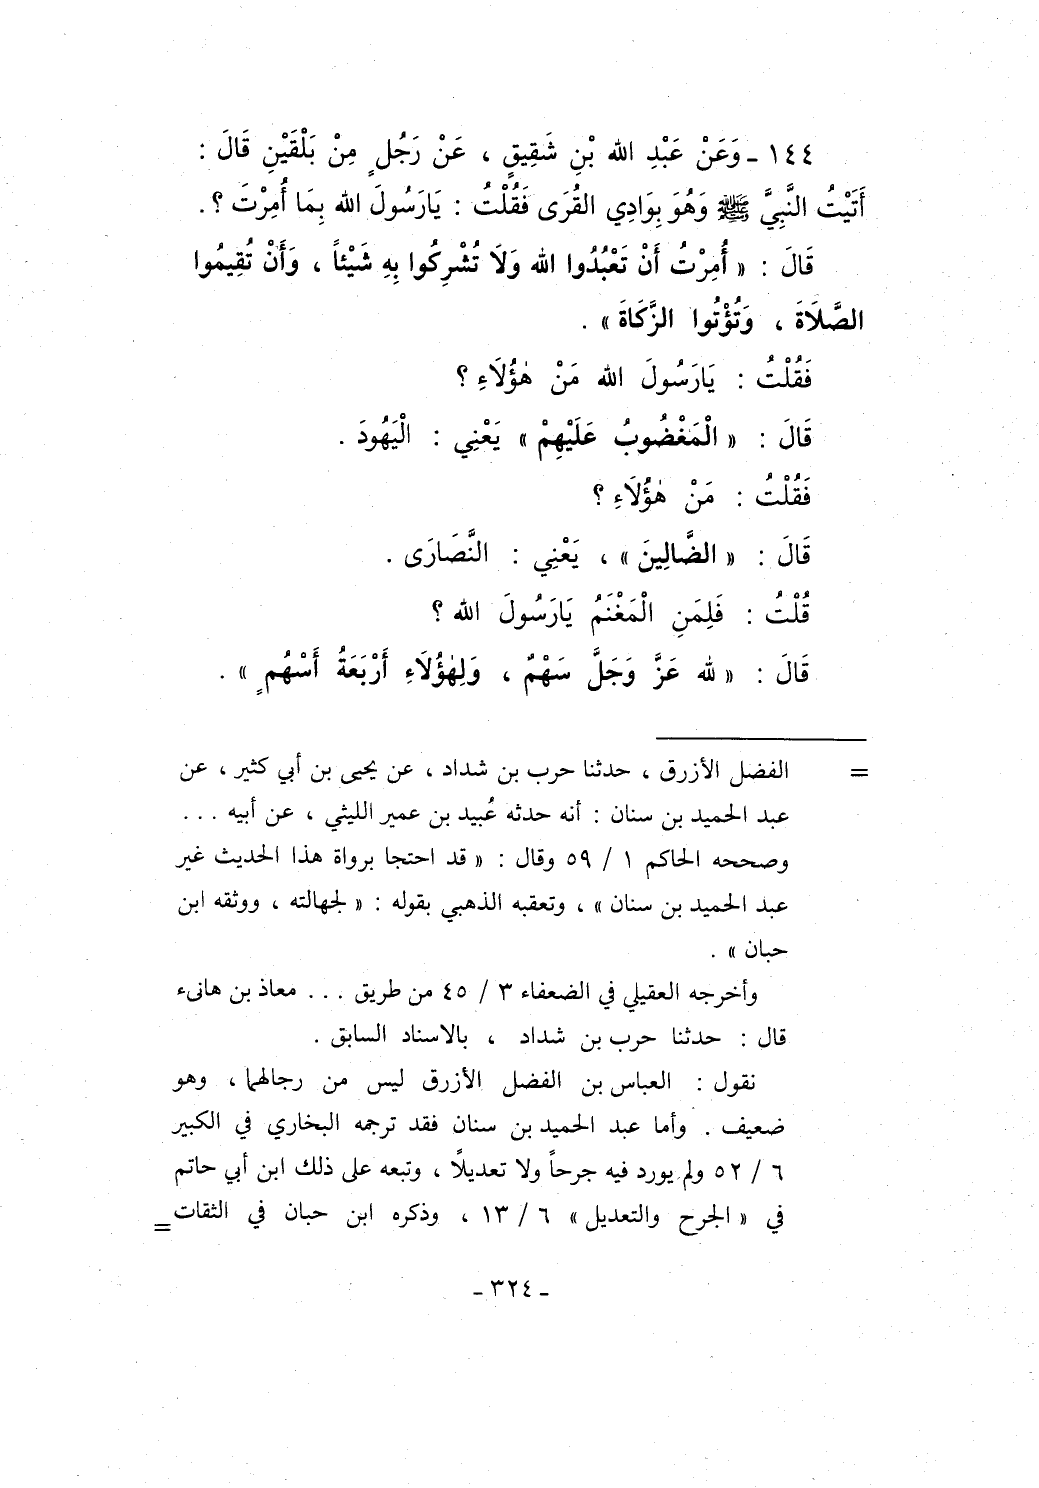 ١٤٤ ـ وَعَنْ عَبْدِ الله بْنِ شَقِيقٍ ، عَنْ رَجُلٍ مِنْ بَلْقَيْنِ قَالَ :
أَتَيْتُ النَّبِيَّ ﷺ وَهُوَ بِوَادِي القُرَى فَقُلْتُ : يَارَسُولَ الله بِمَا أُمِرْتَ ؟.
قَالَ : « أُمِرْتُ أَنْ تَعْبُدُوا الله وَلَا تُشْرِكُوا بِهِ شَيْئاً ، وَأَنْ تُقِيمُوا
الصَّلَاةَ ، وَتُؤْتُوا الزَّكَاةَ » .
فَقُلْتُ : يَارَسُولَ الله مَنْ هٰؤُلَاءِ ؟
قَالَ : « الْمَغْضُوبُ عَلَيْهِمْ » يَعْنِي : الْيَهُودَ .
فَقُلْتُ : مَنْ هٰؤُلَاءِ ؟
قَالَ : « الضَّالِينَ » ، يَعْنِي : النَّصَارَى .
قُلْتُ : فَلِمَنِ الْمَغْنَمُ يَارَسُولَ الله ؟
قَالَ : « لله عَزَّ وَجَلَّ سَهْمٌ ، وَلِهٰؤُلَاءِ أَرْبَعَةُ أَسْهُمٍ » .
= الفضل الأزرق ، حدثنا حرب بن شداد ، عن يحيى بن أبي كثير ، عن
عبد الحميد بن سنان : أنه حدثه عُبيد بن عمير الليثي ، عن أبيه ...
وصححه الحاكم ١ / ٥٩ وقال : « قد احتجا برواة هذا الحديث غير
عبد الحميد بن سنان » ، وتعقبه الذهبي بقوله : « لجهالته ، ووثقه ابن
حبان » .
وأخرجه العقيلي في الضعفاء ٣ / ٤٥ من طريق ... معاذ بن هانىء
قال : حدثنا حرب بن شداد ، بالاسناد السابق .
نقول : العباس بن الفضل الأزرق ليس من رجالهما ، وهو
ضعيف . وأما عبد الحميد بن سنان فقد ترجمه البخاري في الكبير
٦ / ٥٢ ولم يورد فيه جرحاً ولا تعديلًا ، وتبعه على ذلك ابن أبي حاتم
في « الجرح والتعديل » ٦ / ١٣ ، وذكره ابن حبان في الثقات =
ـ ٣٢٤ ـ